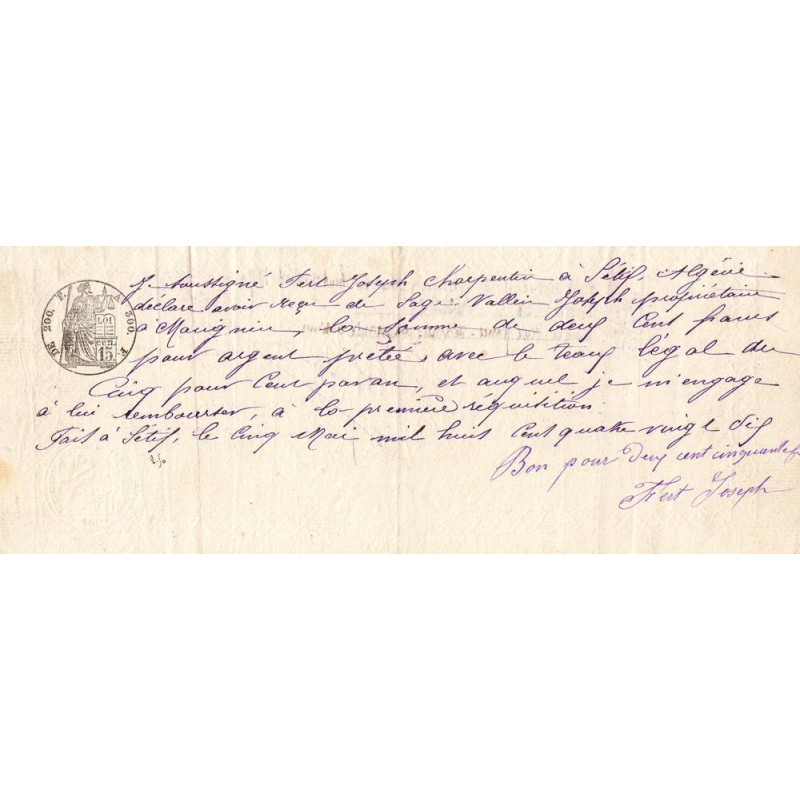 Je soussigné Fert Joseph Charpentier à Sétif, Algérie
déclare avoir reçu de Sage Vallein Joseph propriétaire
à la somme de deux cent francs
pour argent prêtée avec le taux légal du
Cinq pour Cent par an, et auquel je m'engage
à lui rembourser, à la première réquisition.
Fait à Sétif, le Cinq Mai mil huit Cent quatre vingt dix
Bon pour Deux cent cinquante f
Fert Joseph
DE 200. F. A 300. F
LOI
CEN. 15